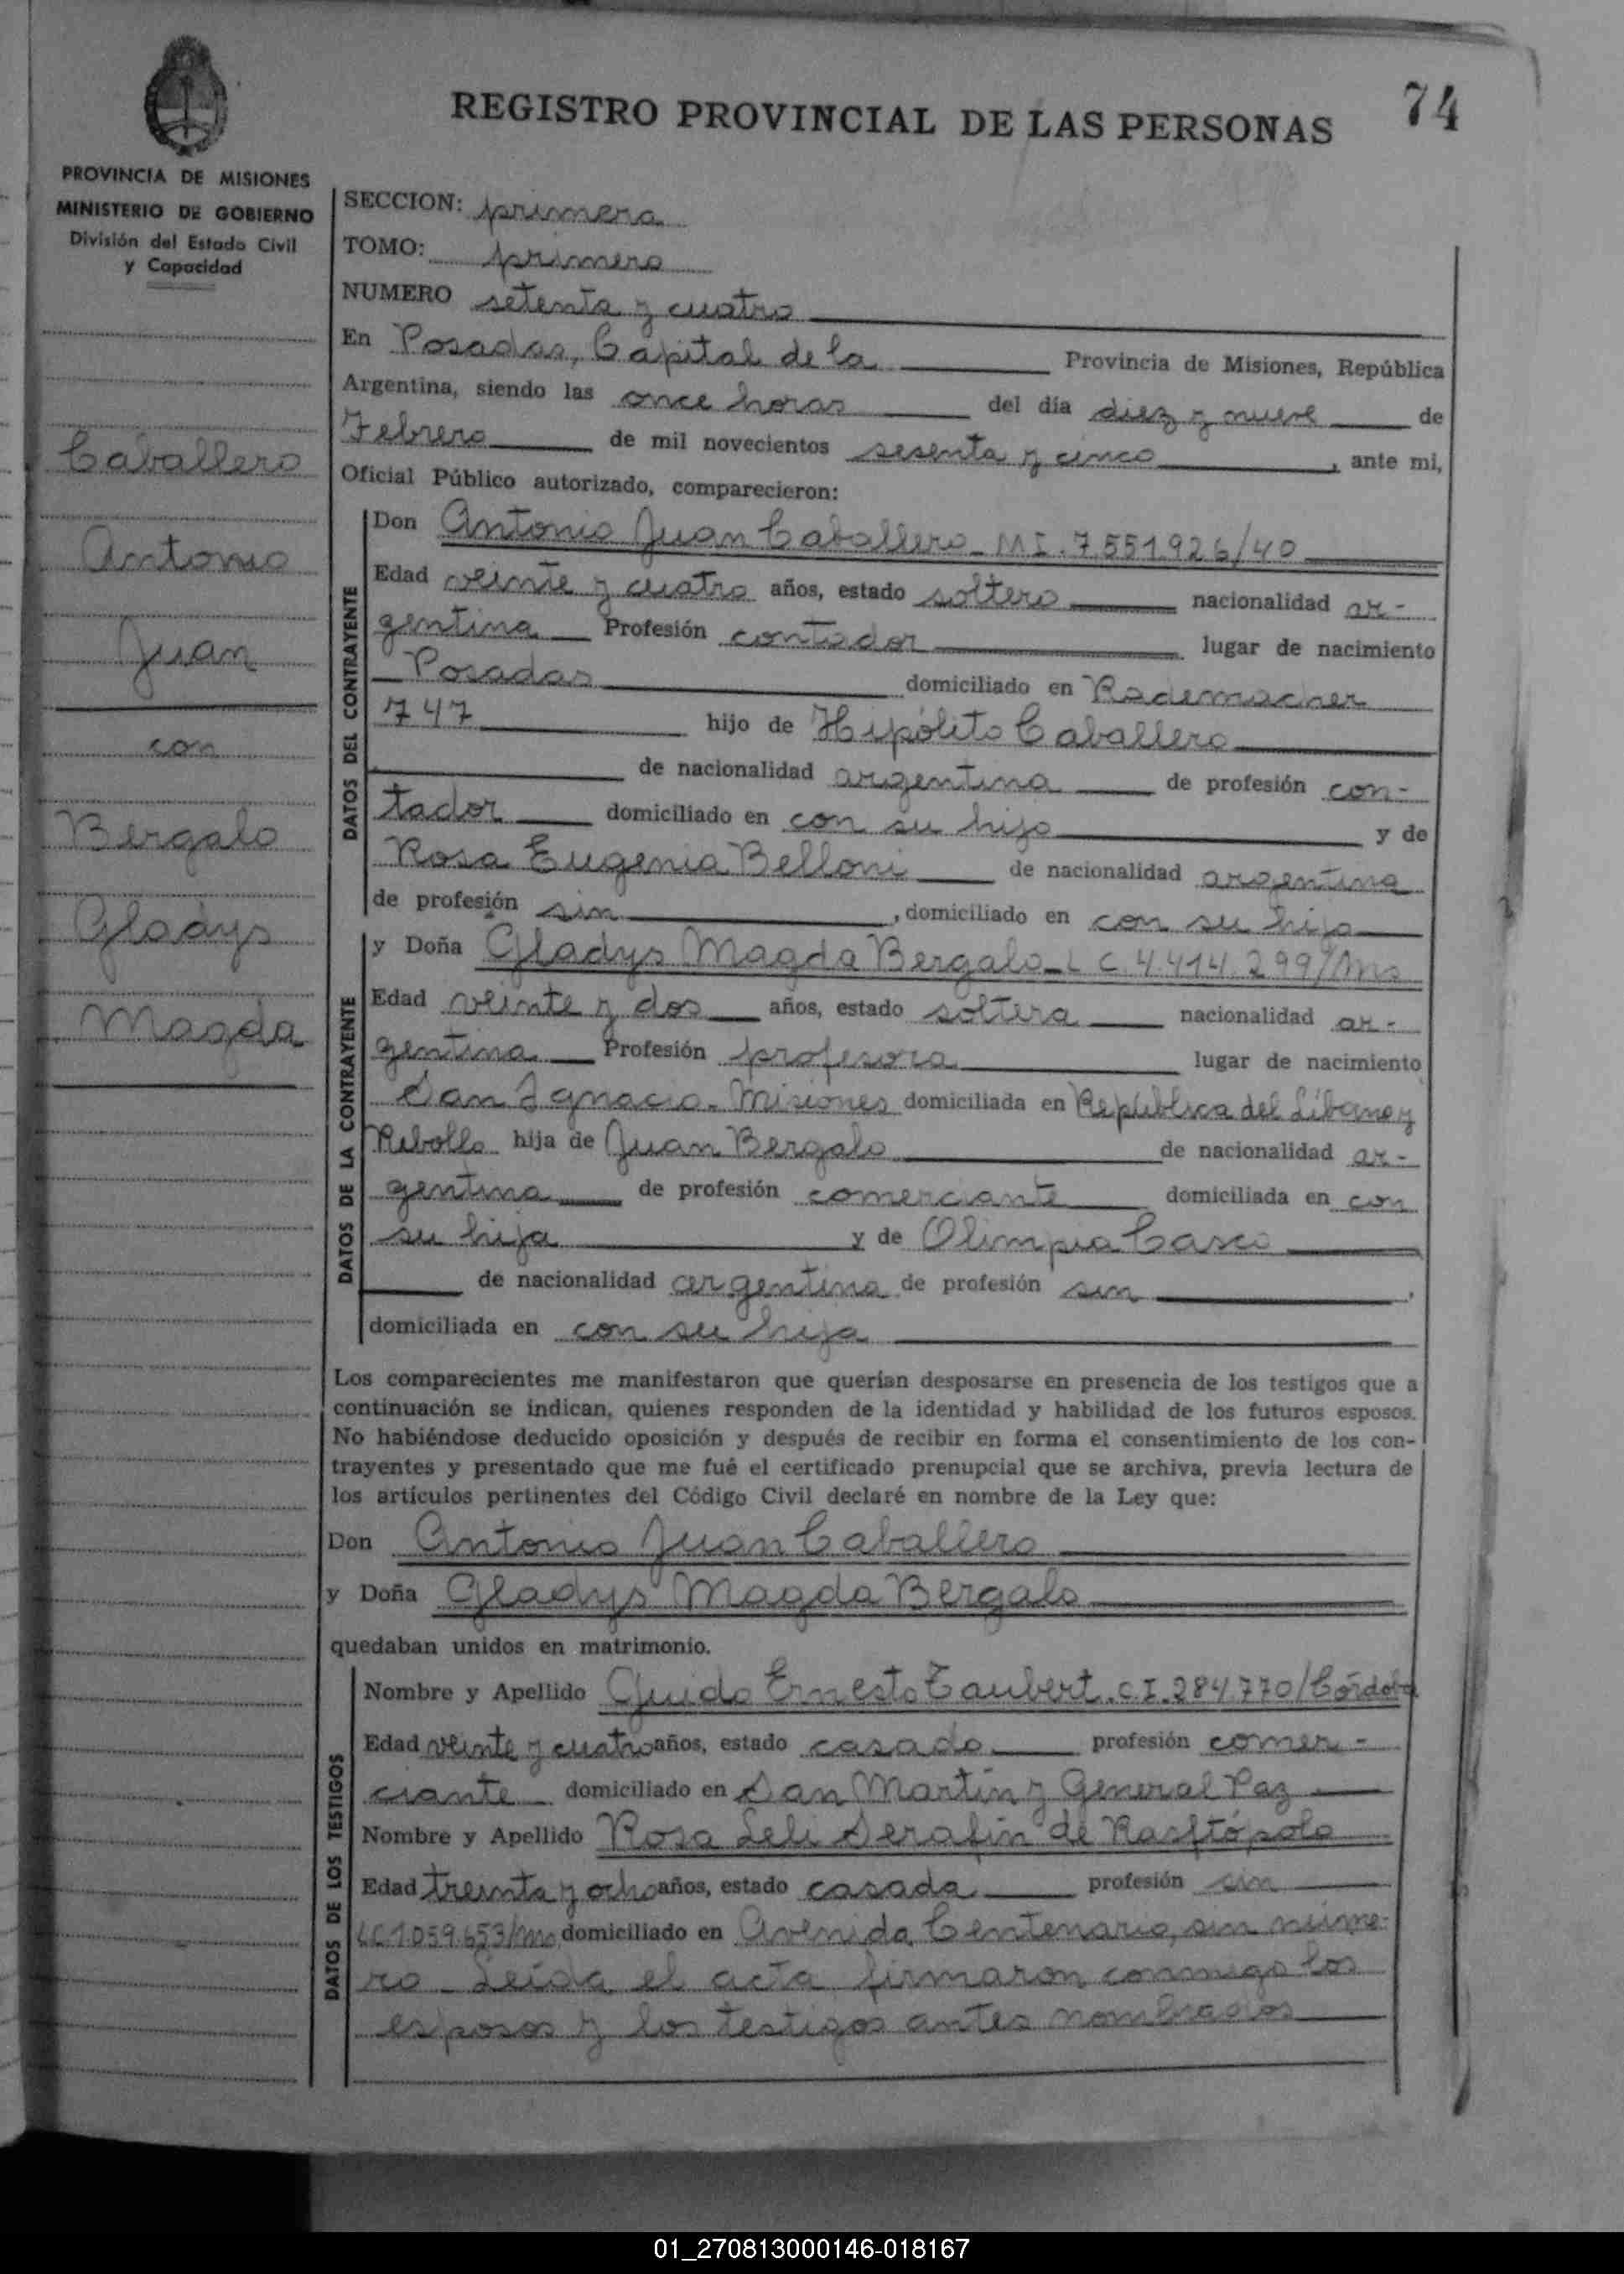 74
REGISTRO PROVINCIAL DE LAS PERSONAS
PROVINCIA DE MISIONES
MINISTERIO DE GOBIERNO
División del Estado Civil
y Capacidad
Caballero
Antonio
Juan
con
Bergalo
Gladys
Magda
SECCION: primera
TOMO: primero
NUMERO setenta y cuatro
En Posadas, Capital de la Provincia de Misiones, República
Argentina, siendo las once horas del día diez y nueve de
Febrero de mil novecientos sesenta y cinco, ante mi,
Oficial Público autorizado, comparecieron:
DATOS DEL CONTRAYENTE
Don Antonio Juan Caballero - MI. 7.551.926/40
Edad veinte y cuatro años, estado soltero nacionalidad ar-
gentina Profesión contador lugar de nacimiento
Posadas domiciliado en Rademacher
747 hijo de Hipólito Caballero
de nacionalidad argentina de profesión con-
tador domiciliado en con su hijo y de
Rosa Eugenia Belloni de nacionalidad argentina
de profesión sin, domiciliado en con su hijo
DATOS DE LA CONTRAYENTE
y Doña Gladys Magda Bergalo - L C 4.414.299/Ms
Edad veinte y dos años, estado soltera nacionalidad ar-
gentina Profesión profesora lugar de nacimiento
San Ignacio - Misiones domiciliada en República del Líbano y
Rebollo hija de Juan Bergalo de nacionalidad ar-
gentina de profesión comerciante domiciliada en con
su hija y de Olimpia Casco
de nacionalidad argentina de profesión sin,
domiciliada en con su hija
Los comparecientes me manifestaron que querían desposarse en presencia de los testigos que a
continuación se indican, quienes responden de la identidad y habilidad de los futuros esposos.
No habiéndose deducido oposición y después de recibir en forma el consentimiento de los con-
trayentes y presentado que me fué el certificado prenupcial que se archiva, previa lectura de
los artículos pertinentes del Código Civil declaré en nombre de la Ley que:
Don Antonio Juan Caballero
y Doña Gladys Magda Bergalo
quedaban unidos en matrimonio.
DATOS DE LOS TESTIGOS
Nombre y Apellido Guido Ernesto Taubert. C I. 284.770/Córdoba
Edad veinte y cuatro años, estado casado profesión comer-
ciante domiciliado en San Martín y General Paz
Nombre y Apellido Rosa Leli Serafin de Rasftópolo
Edad treinta y ocho años, estado casada profesión sin
LC 1.059.653/Ms domiciliado en Avenida Centenario, sin núme-
ro - Leída el acta firmaron conmigo los
esposos y los testigos antes nombrados
01_270813000146-018167